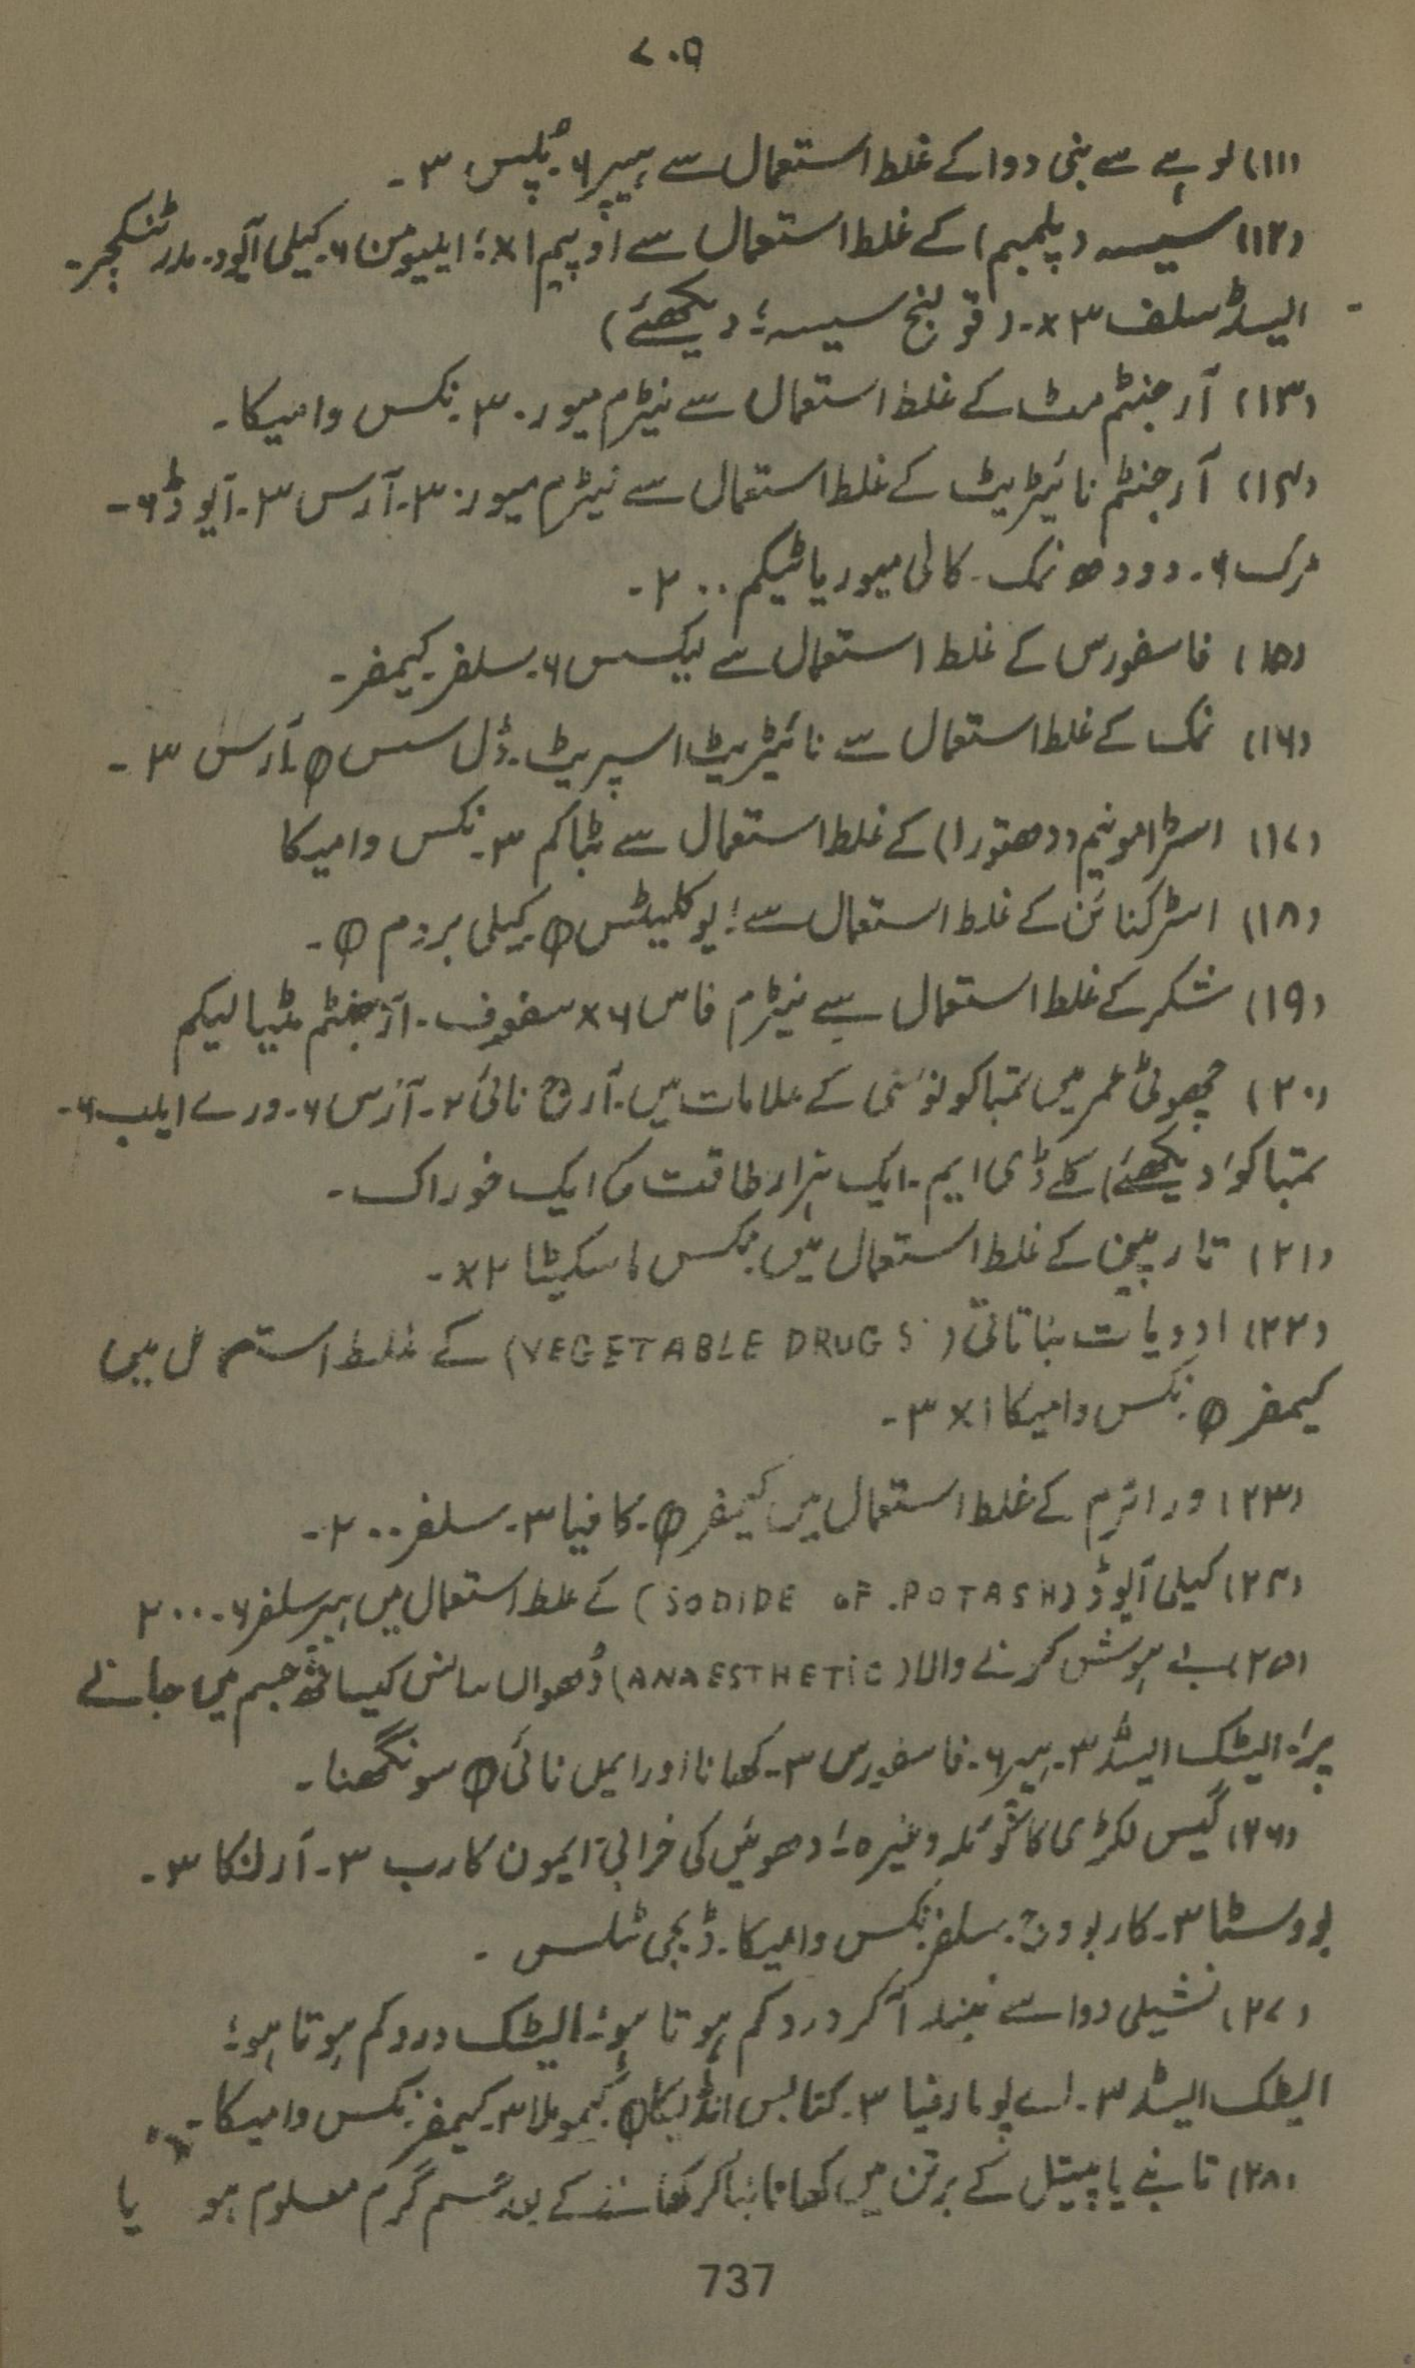 ۷۰۵
(۱۱) لوہے سے بنی دوا کے غلط استعمال سے ہیپر ۶۔ پلس ۳۔
(۱۲) سیسہ (پلمبم) کے غلط استعمال سے اوپیم ۱x؛ ایلیومن ۶۔ کیلی آیوڈ۔ مدر ٹنکچر۔
ایسڈ سلف ۳x۔ (قولنج سیسہ؛ دیکھئے)
(۱۳) آرجنٹم مٹ کے غلط استعمال سے نیٹرم میور ۳۰۔ نکس وامیکا۔
(۱۴) آرجنٹم نائیٹریٹ کے غلط استعمال سے نیٹرم میور ۳۰۔ آرس ۳۔ آیوڈ ۶۔
مرک ۶۔ دودھ نمک۔ کالی میوریاٹیکم ۲۰۰۔
(۱۵) فاسفورس کے غلط استعمال سے لیکسس ۶۔ سلفر۔ کیمفر۔
(۱۶) نمک کے غلط استعمال سے نائیٹریٹ اسپریٹ۔ ڈل سس Φ آرس ۳۔
(۱۷) اسٹرامونیم (دھتورا) کے غلط استعمال سے ٹباکم ۳۔ نکس وامیکا
(۱۸) اسٹرکنائن کے غلط استعمال سے؛ یوکلپٹس Φ کیلی بروم Φ۔
(۱۹) شکر کے غلط استعمال سے نیٹرم فاس ۶x سفوف۔ آرجنٹم مٹیالیکم
(۲۰) چھوٹی عمر میں تمباکو نوشی کے علامات میں۔ آرج نائی ۲۔ آرس ۶۔ ورے ایلب ۶۔
تمباکو (دیکھئے) کلے ڈی ایم۔ ایک ہزار طاقت کا ایک خوراک۔
(۲۱) تارپین کے غلط استعمال میں نکس ماسکیٹا ۲x۔
(۲۲) ادویات بناتاتی (VEGETABLE DRUGS) کے غلط استعمال میں
کیمفر Φ۔ نکس وامیکا ۱x ۳۔
(۲۳) وراٹرم کے غلط استعمال میں کیمفر Φ۔ کافیا ۳۔ سلفر ۲۰۰۔
(۲۴) کیلی آیوڈ (IODIDE OF POTASH) کے غلط استعمال میں ہیپر سلفر ۶۔ ۲۰۰
(۲۵) بے ہوش کرنے والا (ANAESTHETIC) دُھواں سانس کیساتھ جسم میں جانے
پر؛ الیٹک ایسڈ ۳۔ ہیپر ۶۔ فاسفورس ۳۔ کھانا اور ایمل نائی Φ سونگھنا۔
(۲۶) گیس لکڑی کا کوئلہ وغیرہ؛ دھوئیں کی خرابی؛ ایمون کارب ۳۔ آرنکا ۳۔
بووسٹا ۳۔ کاربوویج۔ سلفر نکس وامیکا۔ ڈیجی ٹلس۔
(۲۷) نشیلی دوا سے نیند آ کر درد کم ہوتا ہو؛ الیٹک درد کم ہوتا ہو؛
الیٹک ایسڈ ۳۔ اے پومارفیا ۳۔ کنابس انڈیکا Φ کیموملا ۳۔ کیمفر۔ نکس وامیکا۔
(۲۸) تانبے یا پیتل کے برتن میں کھانا بنا کر کھانے کے بعد جسم گرم معلوم ہو یا
737